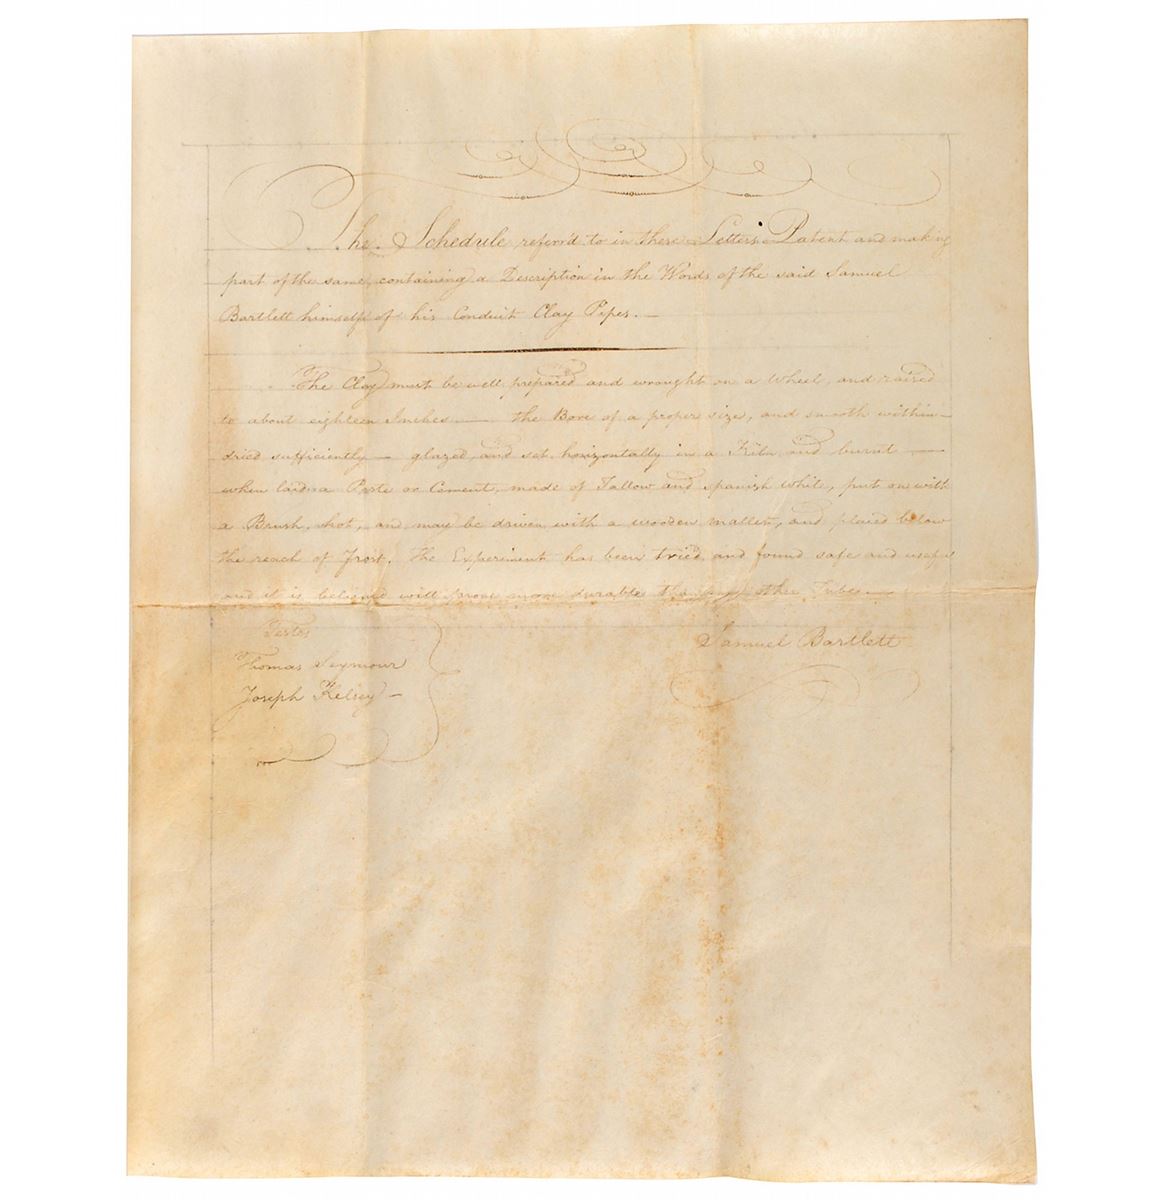 The Schedule referr'd to in these Letters Patent and making
part of the same, containing a Description in the Words of the said Samuel
Bartlett himself of his Conduit Clay Pipes. —
The Clay must be well prepared and wrought on a Wheel, and raised
to about eighteen Inches — the Bore of a proper size, and smooth within —
dried sufficiently — glazed and set horizontally in a Kiln and burnt —
when laid a Paste or Cement, made of Tallow and spanish white, put on with
a Brush, hot, and may be driven with a wooden mallett, and placed below
the reach of Frost. The Experiment has been tried and found safe and useful
and it is believed will prove more durable than any other Tubes —
Testes
Samuel Bartlett
Thomas Seymour
Joseph Kelsey —